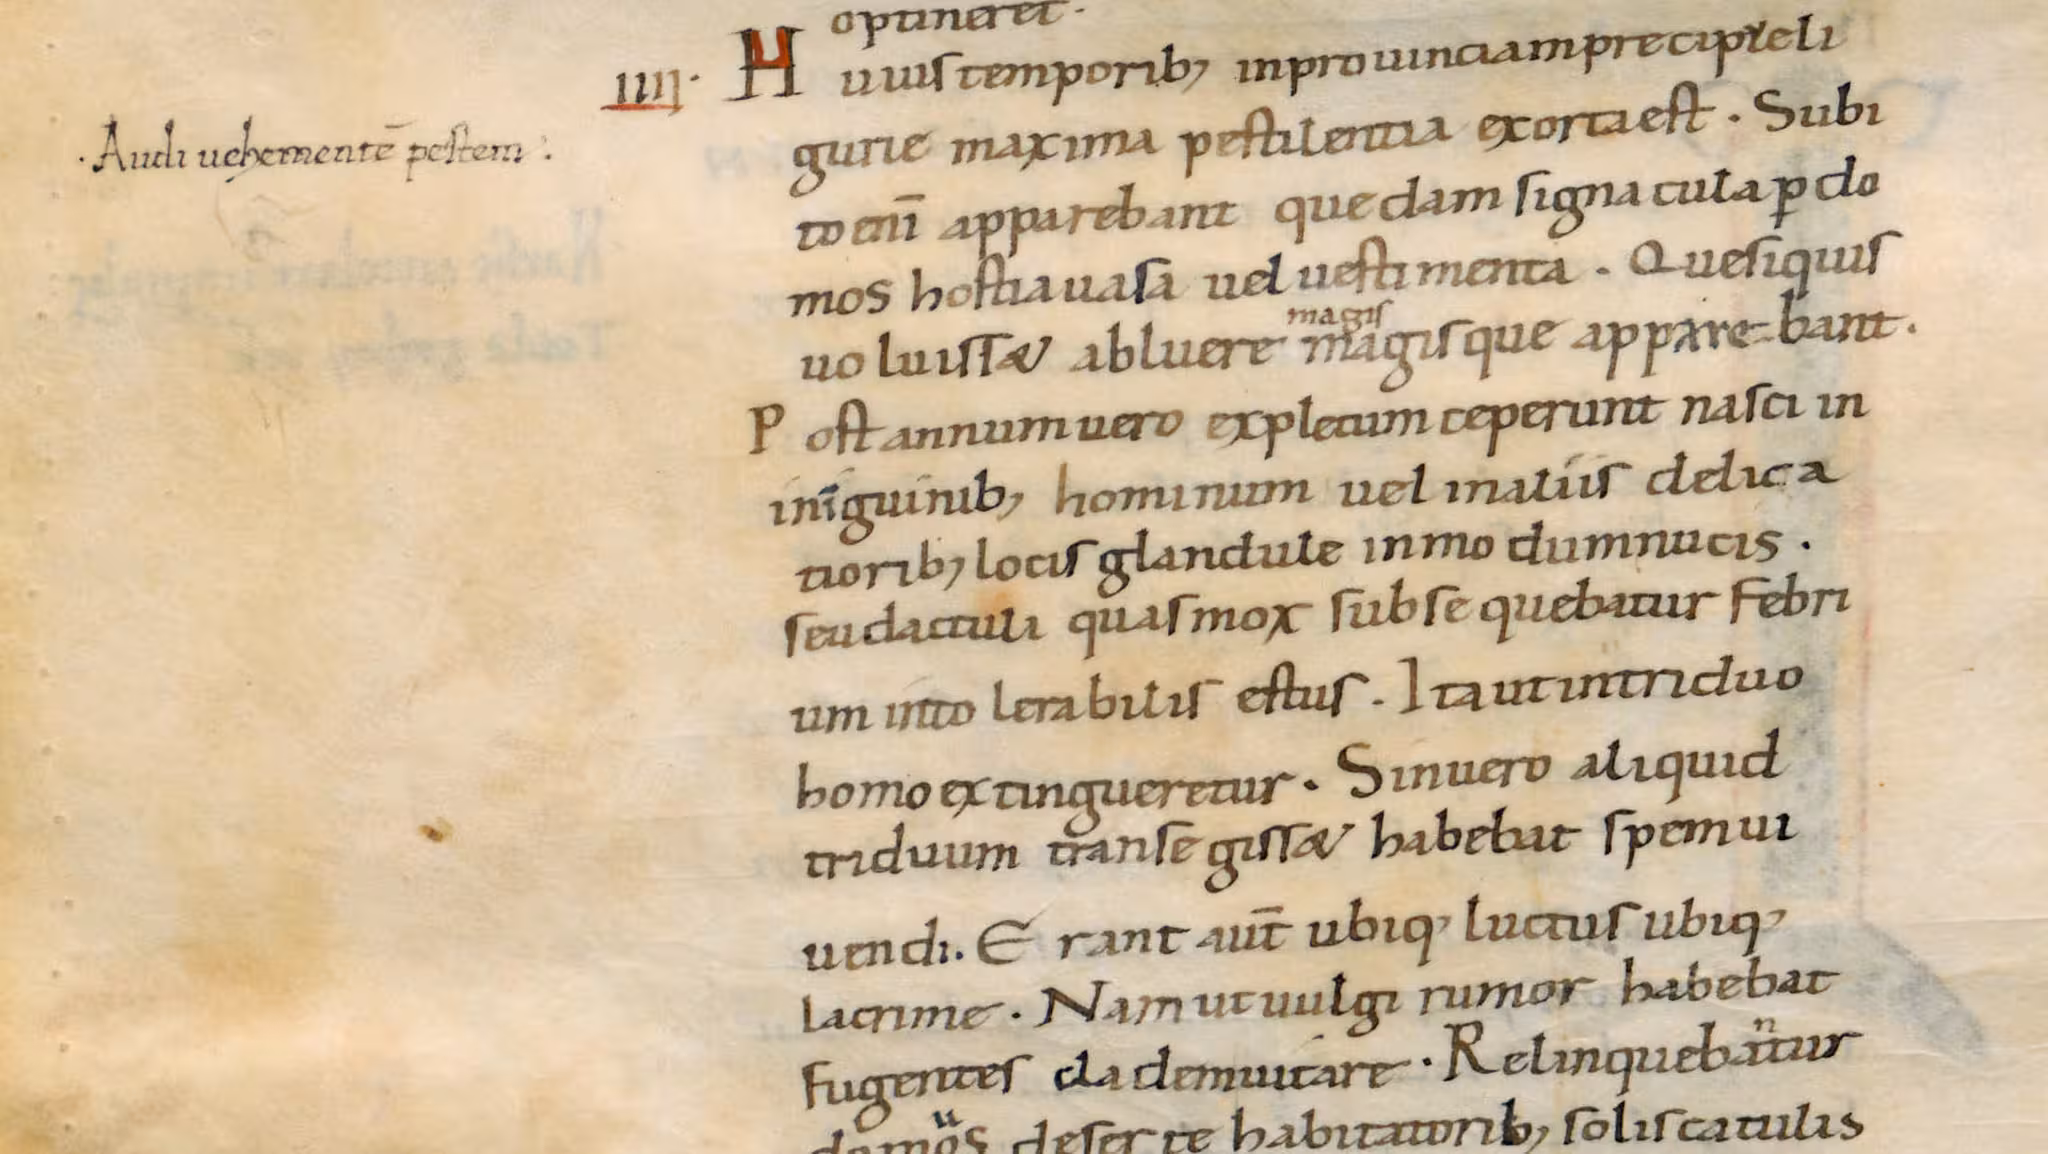 optineret.
IIII. Huius temporib; in prouinciam precipue li
·Audi uehementē pestem:
gurie maxima pestilentia exorta est. Subi
to eni̅ apparebant quedam signacula ꝑ do
mos hostia uasa uel uestimenta. Que siquis
magis
uoluisset abluere magisque apparebant.
Post annum uero expletum ceperunt nasci in
inguinib; hominum uel in aliis delica
tiorib; locis glandule in modum nucis.
seu dactuli quas mox subsequebatur febri
um intolerabilis estus. Ita ut in triduo
homo extingueretur. Sin uero aliquid
triduum transegisset habebat spem ui
uendi. Erant aut̅ ubiq; luctus ubiq;
lacrime. Nam ut uulgi rumor habebat
fugentes cladem uitare. Relinquebantur
domos deserte habitatorib; solis catulis